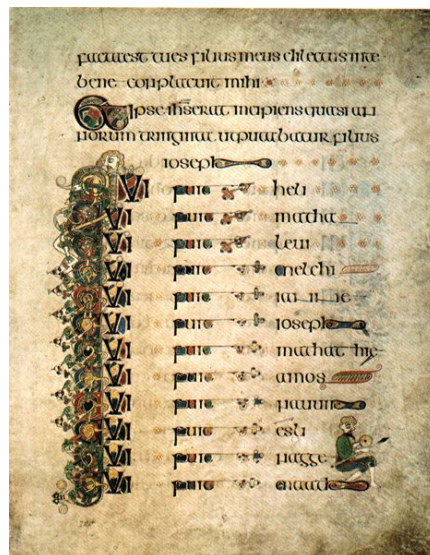 factaest tues filius meus dilectus inte
bene conplacuit mihi
Et ipse ihs erat incipiens quasi an
norum triginta utputabatur filius
ioseph
QVI fuit heli
QVI fuit matha
QVI fuit leui
QVI fuit melchi
QVI fuit
QVI fuit ioseph
QVI fuit mathathie
QVI fuit amos
QVI fuit nauum
QVI fuit esli
QVI fuit nagge
QVI fuit maath